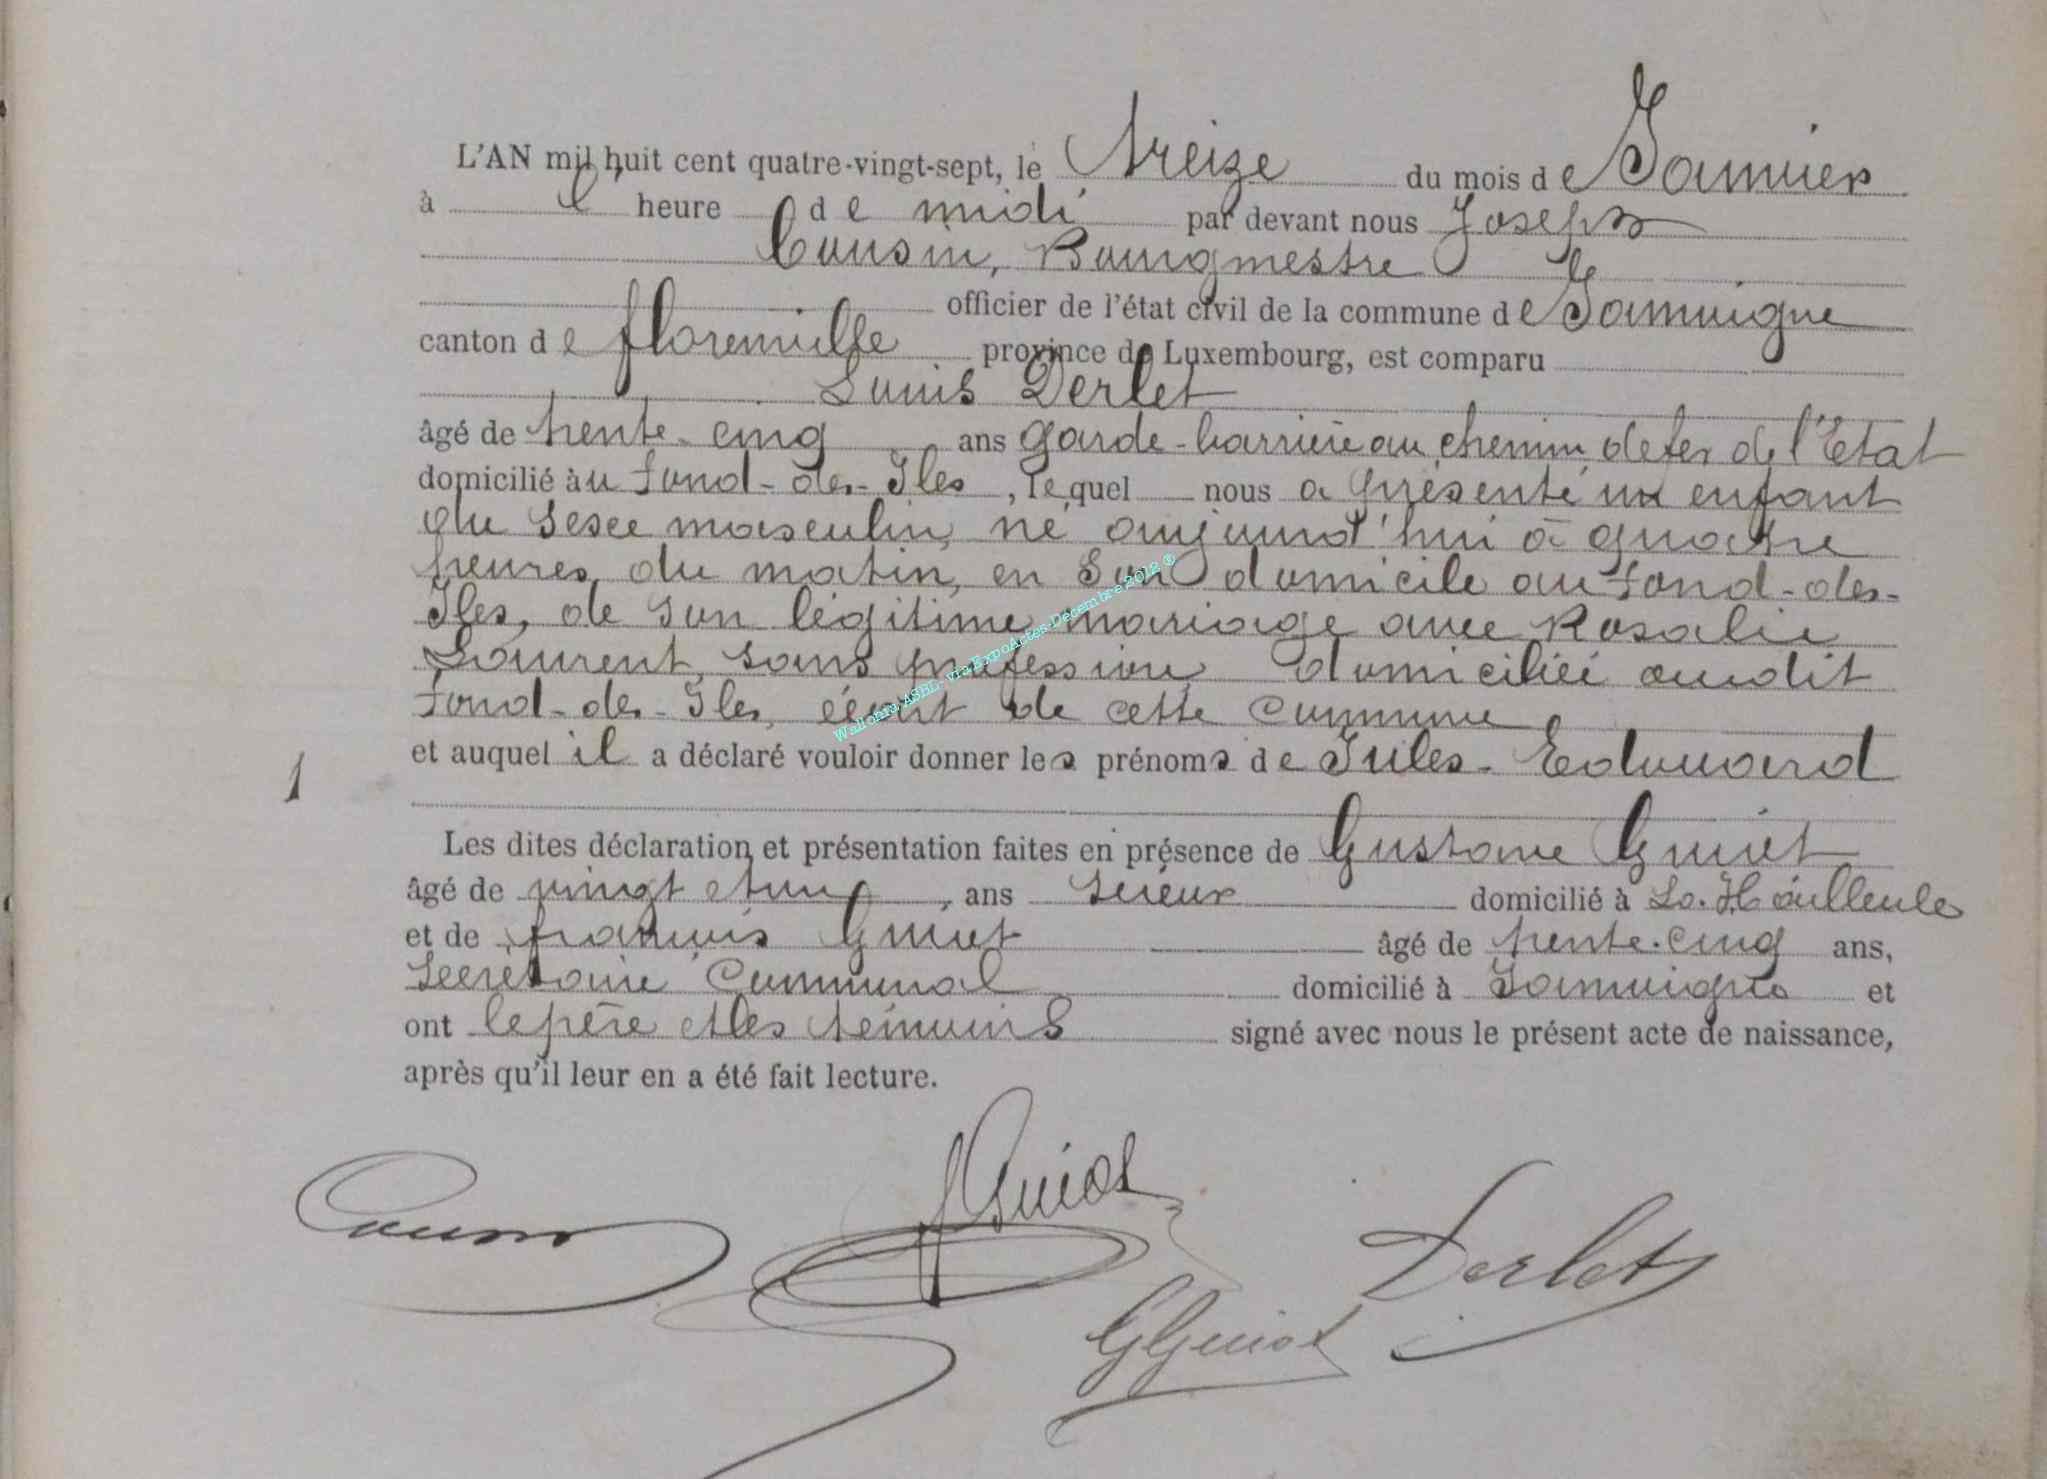 L'AN mil huit cent quatre-vingt-sept, le treize du mois de Janvier
à l' heure de midi par devant nous Joseph
Cousin, Bourgmestre
officier de l'état civil de la commune de Jamoigne
canton de florenville province de Luxembourg, est comparu
Louis Derlet
âgé de trente-cinq ans garde-barrière au chemin de fer de l'Etat
domicilié au fond-des-Iles, lequel nous a présenté un enfant
du sexe masculin, né aujourd'hui à quatre
heures du matin, en son domicile au fond-des-
Iles, de son légitime mariage avec Rosalie
Laurent, sans profession domiciliée audit
fond-des-Iles, écart de cette commune
et auquel il a déclaré vouloir donner les prénoms de Jules-Edouard
1
Les dites déclaration et présentation faites en présence de Gustave Guiot
âgé de vingt et un, ans scieur domicilié à La Hailleule
et de françois Guiot âgé de trente-cinq ans,
Secrétaire Communal domicilié à Jamoigne et
ont le père et les témoins signé avec nous le présent acte de naissance,
après qu'il leur en a été fait lecture.
Cousin
f Guiot
Derlet
G Guiot
Wallonia, ASBL - via ExpoActes-Décembre 2012 ®